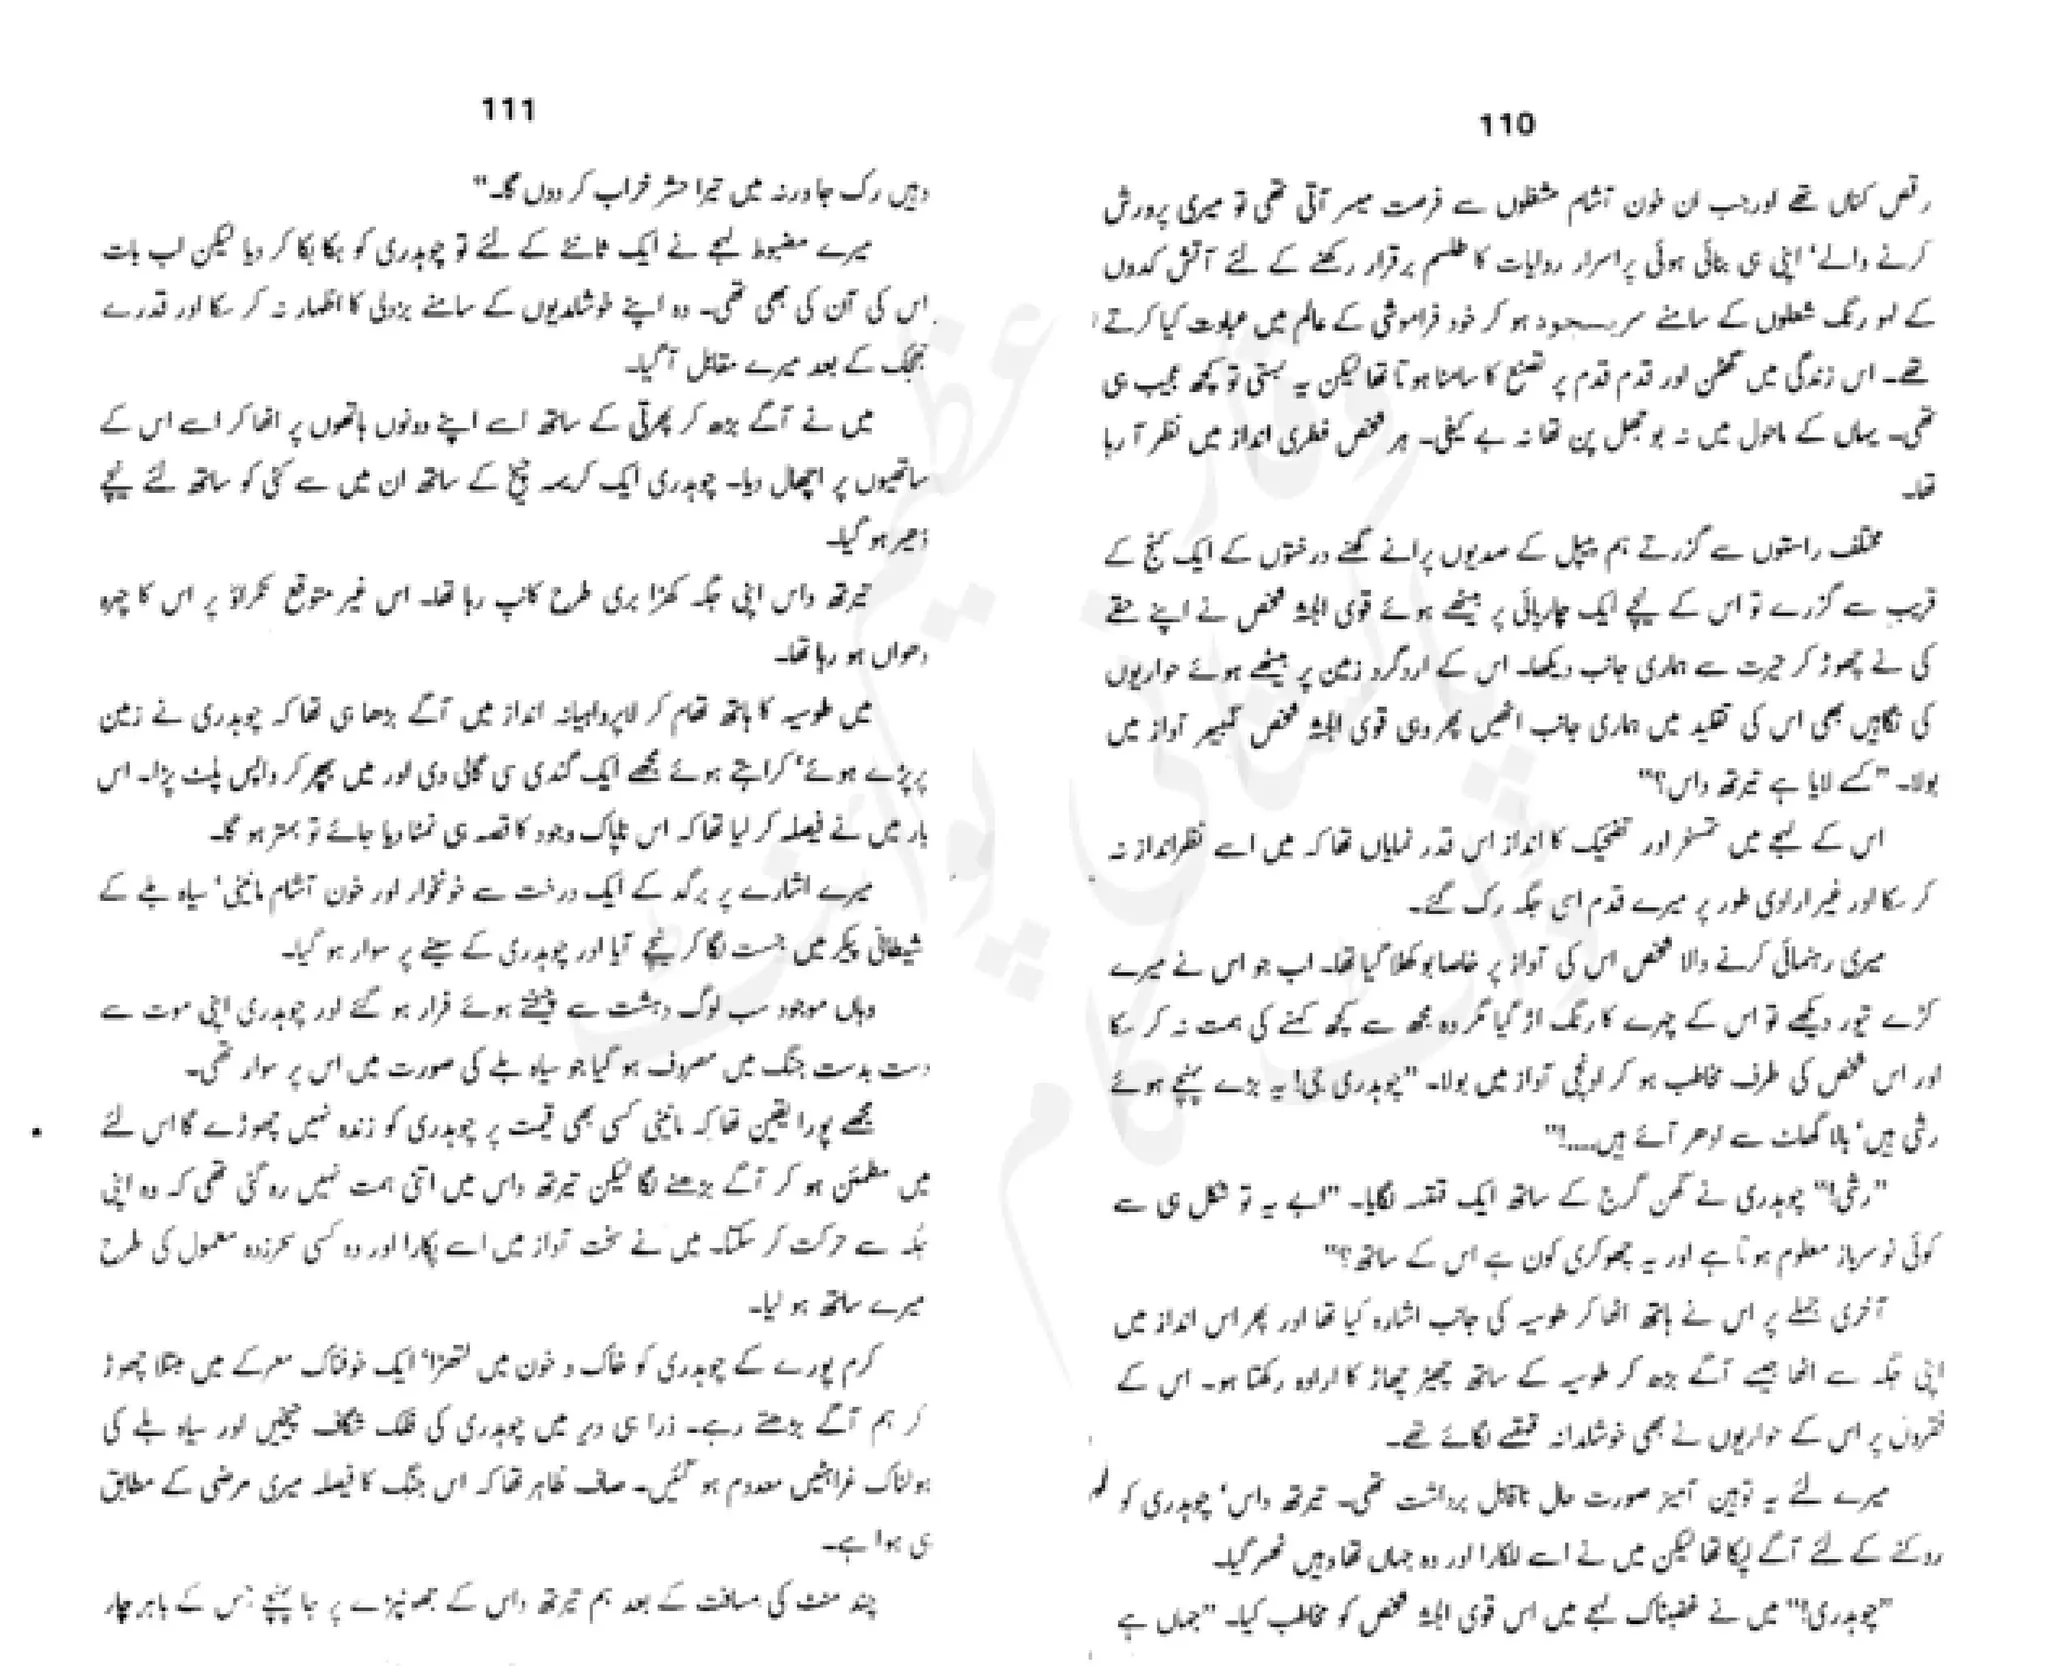 110
رقص کناں تھے اور جب ان خون آشام مشغلوں سے فرصت میسر آتی تھی تو میری پرورش
کرنے والے' اپنی ہی بنائی ہوئی پراسرار روایات کا طلسم برقرار رکھنے کے لئے آتش کدوں
کے لہو رنگ شعلوں کے سامنے سربسجود ہو کر خود فراموشی کے عالم میں عبادت کیا کرتے
تھے۔ اس زندگی میں گھٹن اور قدم قدم پر تصنع کا سامنا ہوتا تھا لیکن یہ بستی تو کچھ عجیب ہی
تھی۔ یہاں کے ماحول میں نہ بوجھل پن تھا نہ بے کیفی۔ ہر شخص فطری انداز میں نظر آ رہا
تھا۔
مختلف راستوں سے گزرتے ہم پیپل کے صدیوں پرانے گھنے درختوں کے ایک کنج کے
قریب سے گزرے تو اس کے نیچے ایک چارپائی پر بیٹھے ہوئے قوی الجثہ شخص نے اپنے حقے
کی نے چھوڑ کر حیرت سے ہماری جانب دیکھا۔ اس کے اردگرد زمین پر بیٹھے ہوئے حواریوں
کی نگاہیں بھی اس کی تقلید میں ہماری جانب اٹھیں پھر وہی قوی الجثہ شخص گمبھیر آواز میں
بولا۔ "کسے لایا ہے تیرتھ داس؟"
اس کے لہجے میں تمسخر اور تضحیک کا انداز اس قدر نمایاں تھا کہ میں اسے نظرانداز نہ
کر سکا اور غیر ارادی طور پر میرے قدم اسی جگہ رک گئے۔
میری رہنمائی کرنے والا شخص اس کی آواز پر خاصا بوکھلا گیا تھا۔ اب جو اس نے میرے
کڑے تیور دیکھے تو اس کے چہرے کا رنگ اڑ گیا مگر وہ مجھ سے کچھ کہنے کی ہمت نہ کر سکا
اور اس شخص کی طرف مخاطب ہو کر اونچی آواز میں بولا۔ "چوہدری جی! یہ بڑے پہنچے ہوئے
رشی ہیں' بالا گھاٹ سے ادھر آئے ہیں.....!"
"رشی!" چوہدری نے گھن گرج کے ساتھ ایک قہقہہ لگایا۔ "ابے یہ تو شکل ہی سے
کوئی نوسرباز معلوم ہوتا ہے اور یہ چھوکری کون ہے اس کے ساتھ؟"
آخری جملے پر اس نے ہاتھ اٹھا کر طوسیہ کی جانب اشارہ کیا تھا اور پھر اس انداز میں
اپنی جگہ سے اٹھا جیسے آگے بڑھ کر طوسیہ کے ساتھ چھیڑ چھاڑ کا ارادہ رکھتا ہو۔ اس کے
فقروں پر اس کے حواریوں نے بھی خوشامدانہ قہقہے لگائے تھے۔
میرے لئے یہ توہین آمیز صورت حال ناقابل برداشت تھی۔ تیرتھ داس' چوہدری کو
روکنے کے لئے آگے لپکا تھا لیکن میں نے اسے للکارا اور وہ جہاں تھا وہیں ٹھہر گیا۔
"چوہدری!" میں نے غضبناک لہجے میں اس قوی الجثہ شخص کو مخاطب کیا۔ "جہاں ہے
111
وہیں رک جا ورنہ میں تیرا حشر خراب کر دوں گا۔"
میرے مضبوط لہجے نے ایک ثانئے کے لئے تو چوہدری کو ہکا بکا کر دیا لیکن اب بات
اس کی آن کی بھی تھی۔ وہ اپنے خوشامدیوں کے سامنے بزدلی کا اظہار نہ کر سکا اور قدرے
جھجک کے بعد میرے مقابل آ گیا۔
میں نے آگے بڑھ کر پھرتی کے ساتھ اسے اپنے دونوں ہاتھوں پر اٹھا کر اسے اس کے
ساتھیوں پر اچھال دیا۔ چوہدری ایک کریہہ چیخ کے ساتھ ان میں سے کئی کو ساتھ لئے نیچے
ڈھیر ہو گیا۔
تیرتھ داس اپنی جگہ کھڑا بری طرح کانپ رہا تھا۔ اس غیر متوقع ٹکراؤ پر اس کا چہرہ
دھواں ہو رہا تھا۔
میں طوسیہ کا ہاتھ تھام کر لاپرواہیانہ انداز میں آگے بڑھا ہی تھا کہ چوہدری نے زمین
پر پڑے ہوئے' کراہتے ہوئے مجھے ایک گندی سی گالی دی اور میں بپھر کر واپس پلٹ پڑا۔ اس
بار میں نے فیصلہ کر لیا تھا کہ اس ناپاک وجود کا قصہ ہی نمٹا دیا جائے تو بہتر ہو گا۔
میرے اشارے پر برگد کے ایک درخت سے خونخوار اور خون آشام مانینی' سیاہ بلے کے
شیطانی پیکر میں جست لگا کر نیچے آیا اور چوہدری کے سینے پر سوار ہو گیا۔
وہاں موجود سب لوگ دہشت سے چیختے ہوئے فرار ہو گئے اور چوہدری اپنی موت سے
دست بدست جنگ میں مصروف ہو گیا جو سیاہ بلے کی صورت میں اس پر سوار تھی۔
مجھے پورا یقین تھا کہ مانینی کسی بھی قیمت پر چوہدری کو زندہ نہیں چھوڑے گا اس لئے
میں مطمئن ہو کر آگے بڑھنے لگا لیکن تیرتھ داس میں اتنی ہمت نہیں رہ گئی تھی کہ وہ اپنی
جگہ سے حرکت کر سکتا۔ میں نے سخت آواز میں اسے پکارا اور وہ کسی سحرزدہ معمول کی طرح
میرے ساتھ ہو لیا۔
کرم پورے کے چوہدری کو خاک و خون میں لتھڑا' ایک خوفناک معرکے میں مبتلا چھوڑ
کر ہم آگے بڑھتے رہے۔ ذرا ہی دیر میں چوہدری کی فلک شگاف چیخیں اور سیاہ بلے کی
ہولناک غراہٹیں معدوم ہو گئیں۔ صاف ظاہر تھا کہ اس جنگ کا فیصلہ میری مرضی کے مطابق
ہی ہوا ہے۔
چند منٹ کی مسافت کے بعد ہم تیرتھ داس کے جھونپڑے پر جا پہنچے جس کے باہر چار